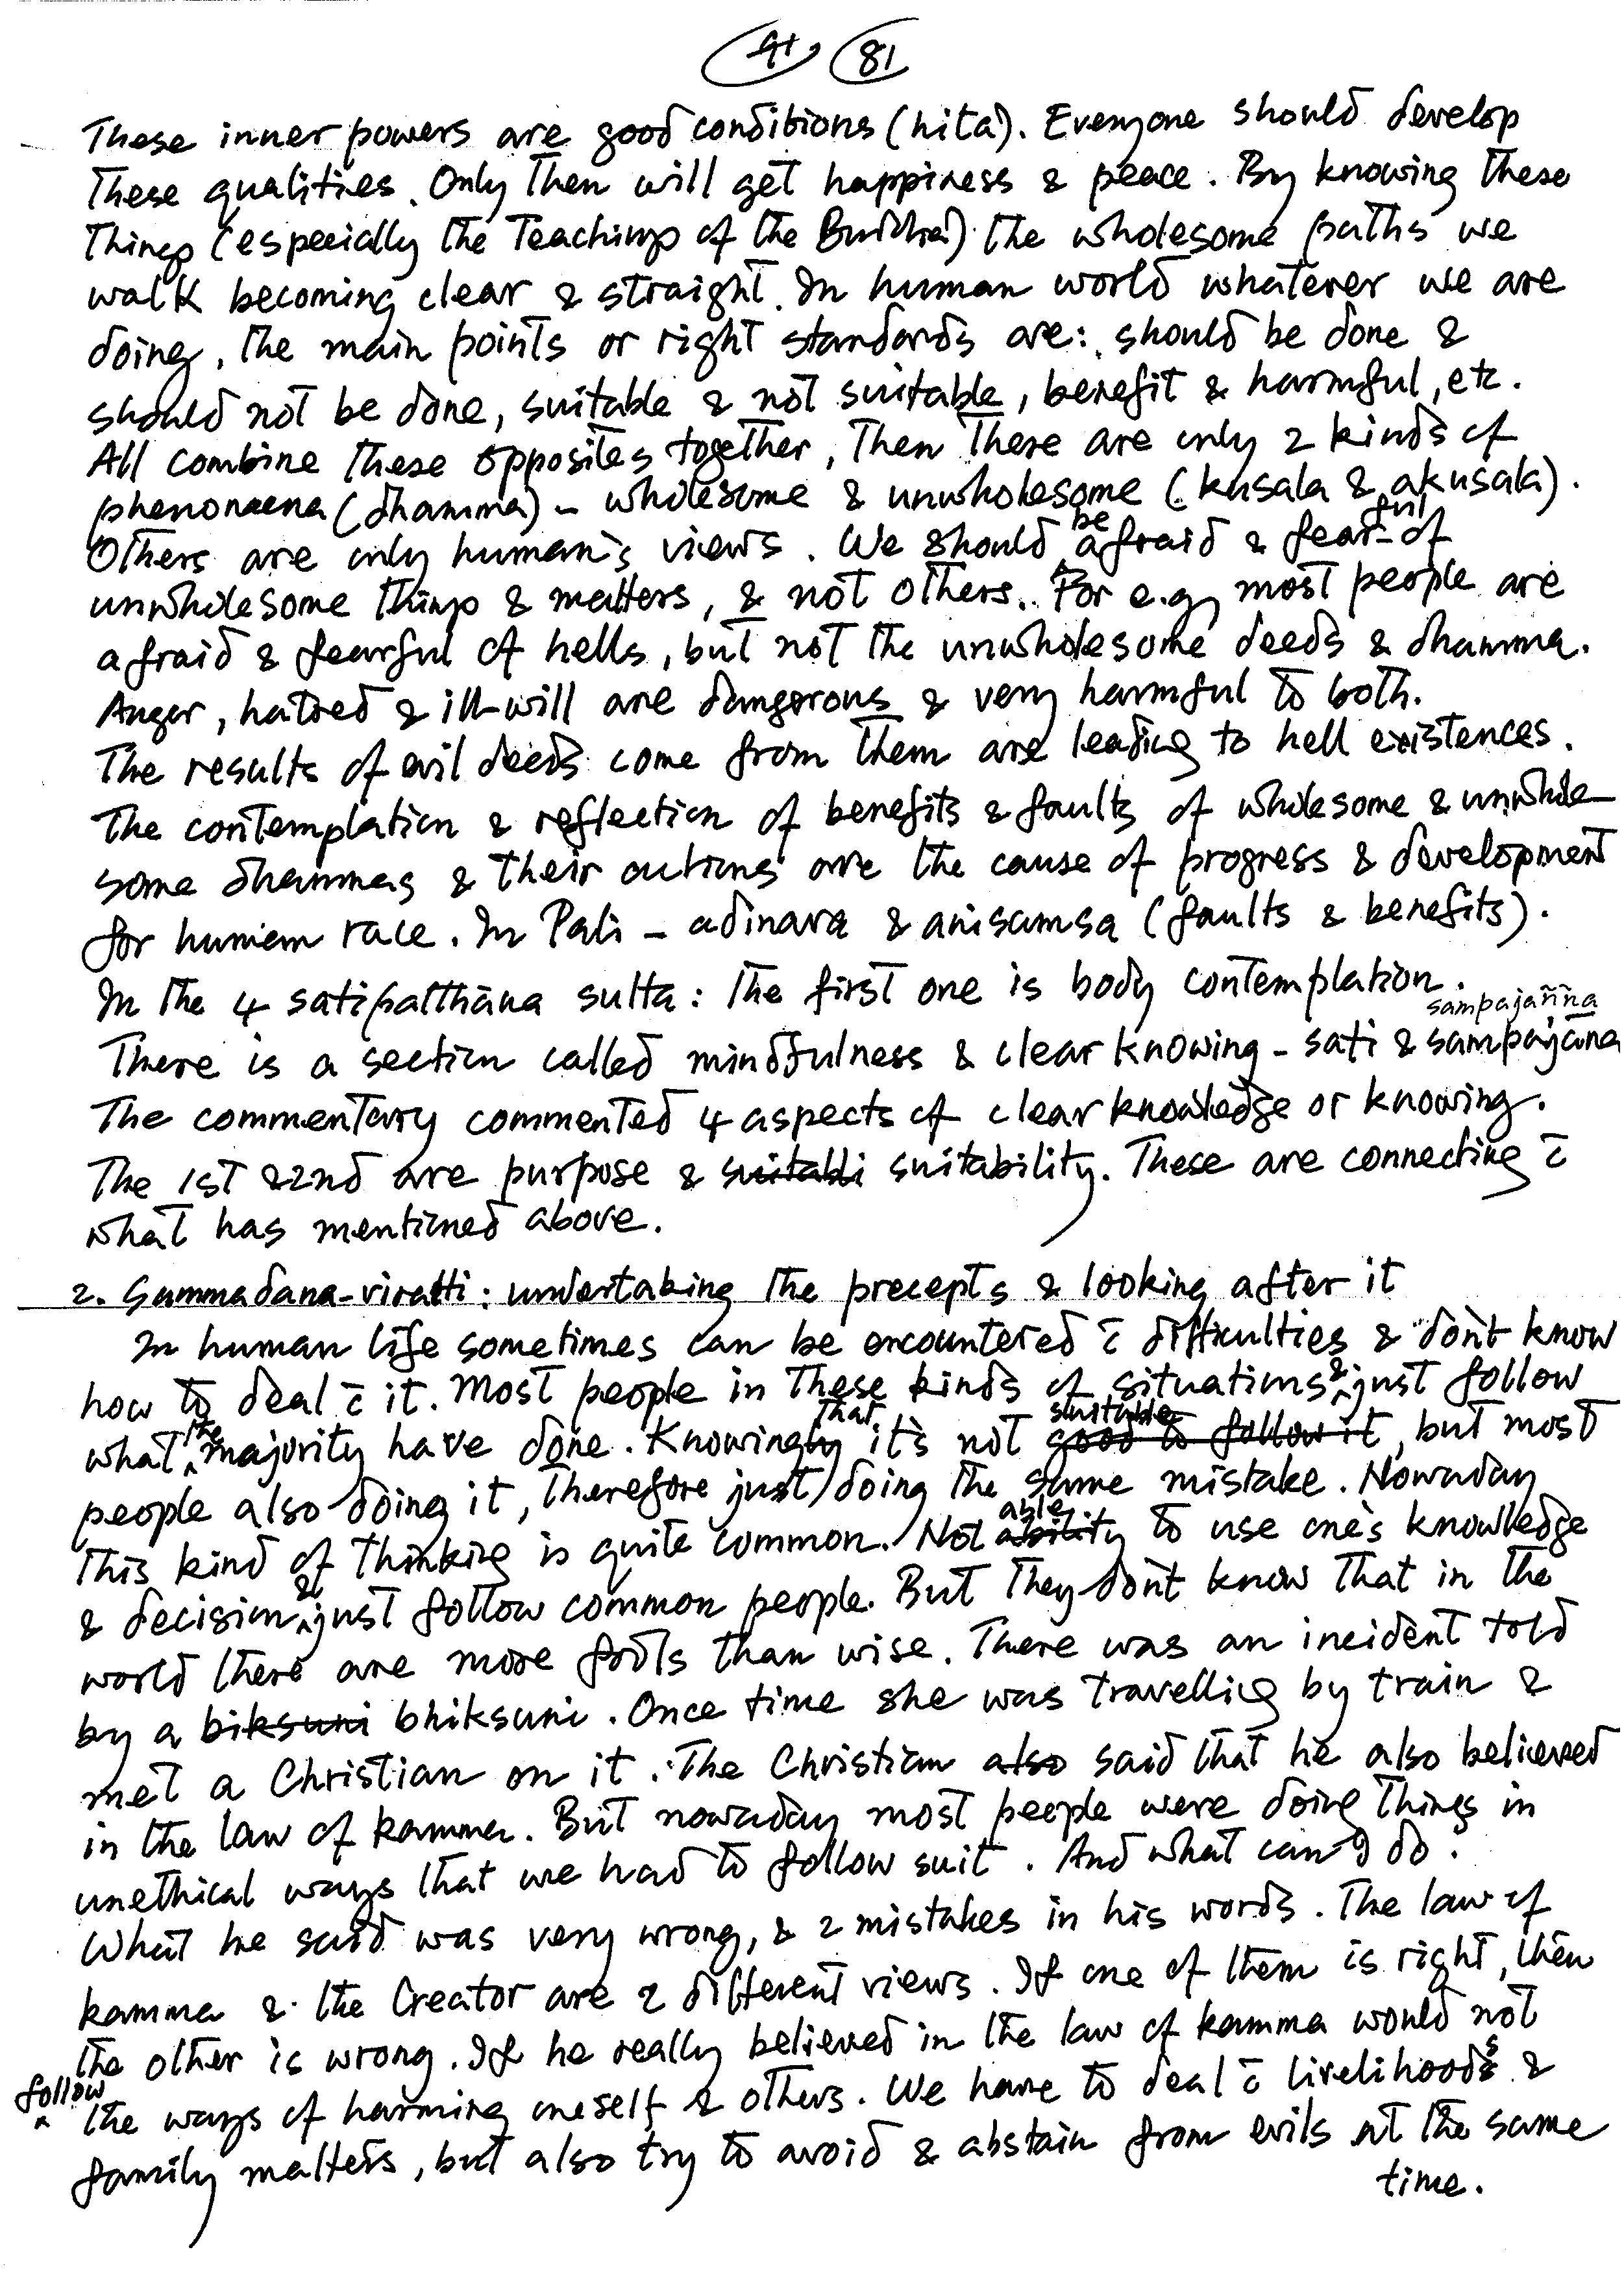 81
These inner powers are good conditions (hita). Everyone should develop
these qualities. Only then will get happiness & peace. By knowing these
things (especially the Teachings of the Buddha) the wholesome paths we
walk becoming clear & straight. In human world whatever we are
doing, the main points or right standards are: should be done &
should not be done, suitable & not suitable, benefit & harmful, etc.
All combine these opposites together, then there are only 2 kinds of
phenomena (dhamma) – wholesome & unwholesome (kusala & akusala).
Others are only human's views. We should be afraid & fearful of
unwholesome things & matters, & not others. For e.g, most people are
afraid & fearful of hells, but not the unwholesome deeds & dhamma.
Anger, hatred & ill-will are dangerous & very harmful to both.
The results of evil deeds come from them are leading to hell existences.
The contemplation & reflection of benefits & faults of wholesome & unwhole-
some dhammas & their actions are the cause of progress & development
for human race. In Pali – adinava & anisamsa (faults & benefits).
In the 4 satipatthāna sutta: the first one is body contemplation.
sampajañña
There is a section called mindfulness & clear knowing – sati & sampajāna
The commentary commented 4 aspects of clear knowledge or knowing.
The 1st & 2nd are purpose & suitabli suitability. These are connecting c̄
what has mentioned above.
2. Sammadana-viratti: undertaking the precepts & looking after it
In human life sometimes can be encountered c̄ difficulties & don't know
how to deal c̄ it. Most people in these kinds of situations & just follow
what the majority have done. Knowingly that it's not good to follow it suitable, but most
people also doing it, therefore just doing the same mistake. Nowaday
this kind of thinking is quite common. Not ability able to use one's knowledge
& decision & just follow common people. But they don't know that in the
world there are more fools than wise. There was an incident told
by a biksuni bhiksuni. Once time she was travelling by train &
met a Christian on it. The Christian also said that he also believed
in the law of kamma. But nowaday most people were doing things in
unethical ways that we had to follow suit. And what can I do?
What he said was very wrong, & 2 mistakes in his words. The law of
kamma & the Creator are 2 different views. If one of them is right, then
the other is wrong. If he really believed in the law of kamma would not
follow the ways of harming oneself & others. We have to deal c̄ livelihoods &
family matters, but also try to avoid & abstain from evils at the same
time.